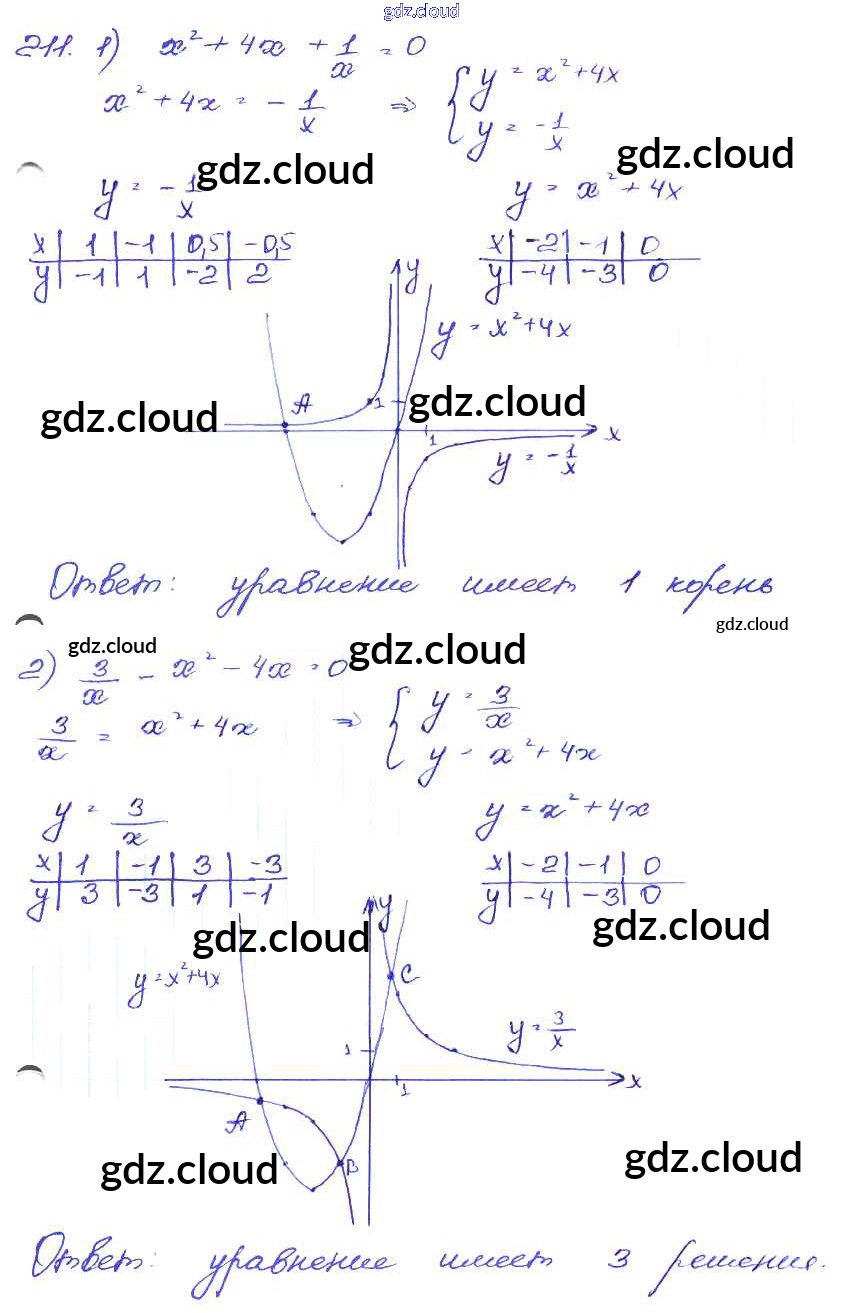 gdz.cloud
211. 1) x² + 4x + 1/x = 0
x² + 4x = - 1/x ⇒ { y = x² + 4x
y = - 1/x
gdz.cloud gdz.cloud
y = - 1/x y = x² + 4x
x | 1 | -1 | 0,5 | -0,5
y | -1 | 1 | -2 | 2
x | -2 | -1 | 0
y | -4 | -3 | 0
y
y = x² + 4x
A 1 gdz.cloud
gdz.cloud
1 x
y = - 1/x
Ответ: уравнение имеет 1 корень
gdz.cloud
gdz.cloud gdz.cloud
2) 3/x - x² - 4x = 0
3/x = x² + 4x ⇒ { y = 3/x
y = x² + 4x
y = 3/x y = x² + 4x
x | 1 | -1 | 3 | -3
y | 3 | -3 | 1 | -1
x | -2 | -1 | 0
y | -4 | -3 | 0
y
gdz.cloud gdz.cloud
y = x² + 4x C
y = 3/x
1
1 x
A
B
gdz.cloud gdz.cloud
Ответ: уравнение имеет 3 решения.